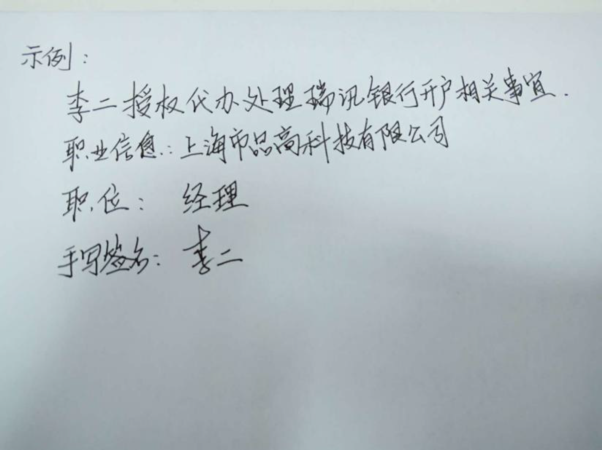 示例:
李二授权代办处理瑞讯银行开户相关事宜.
职业信息:上海市品高科技有限公司
职位: 经理
手写签名: 李二